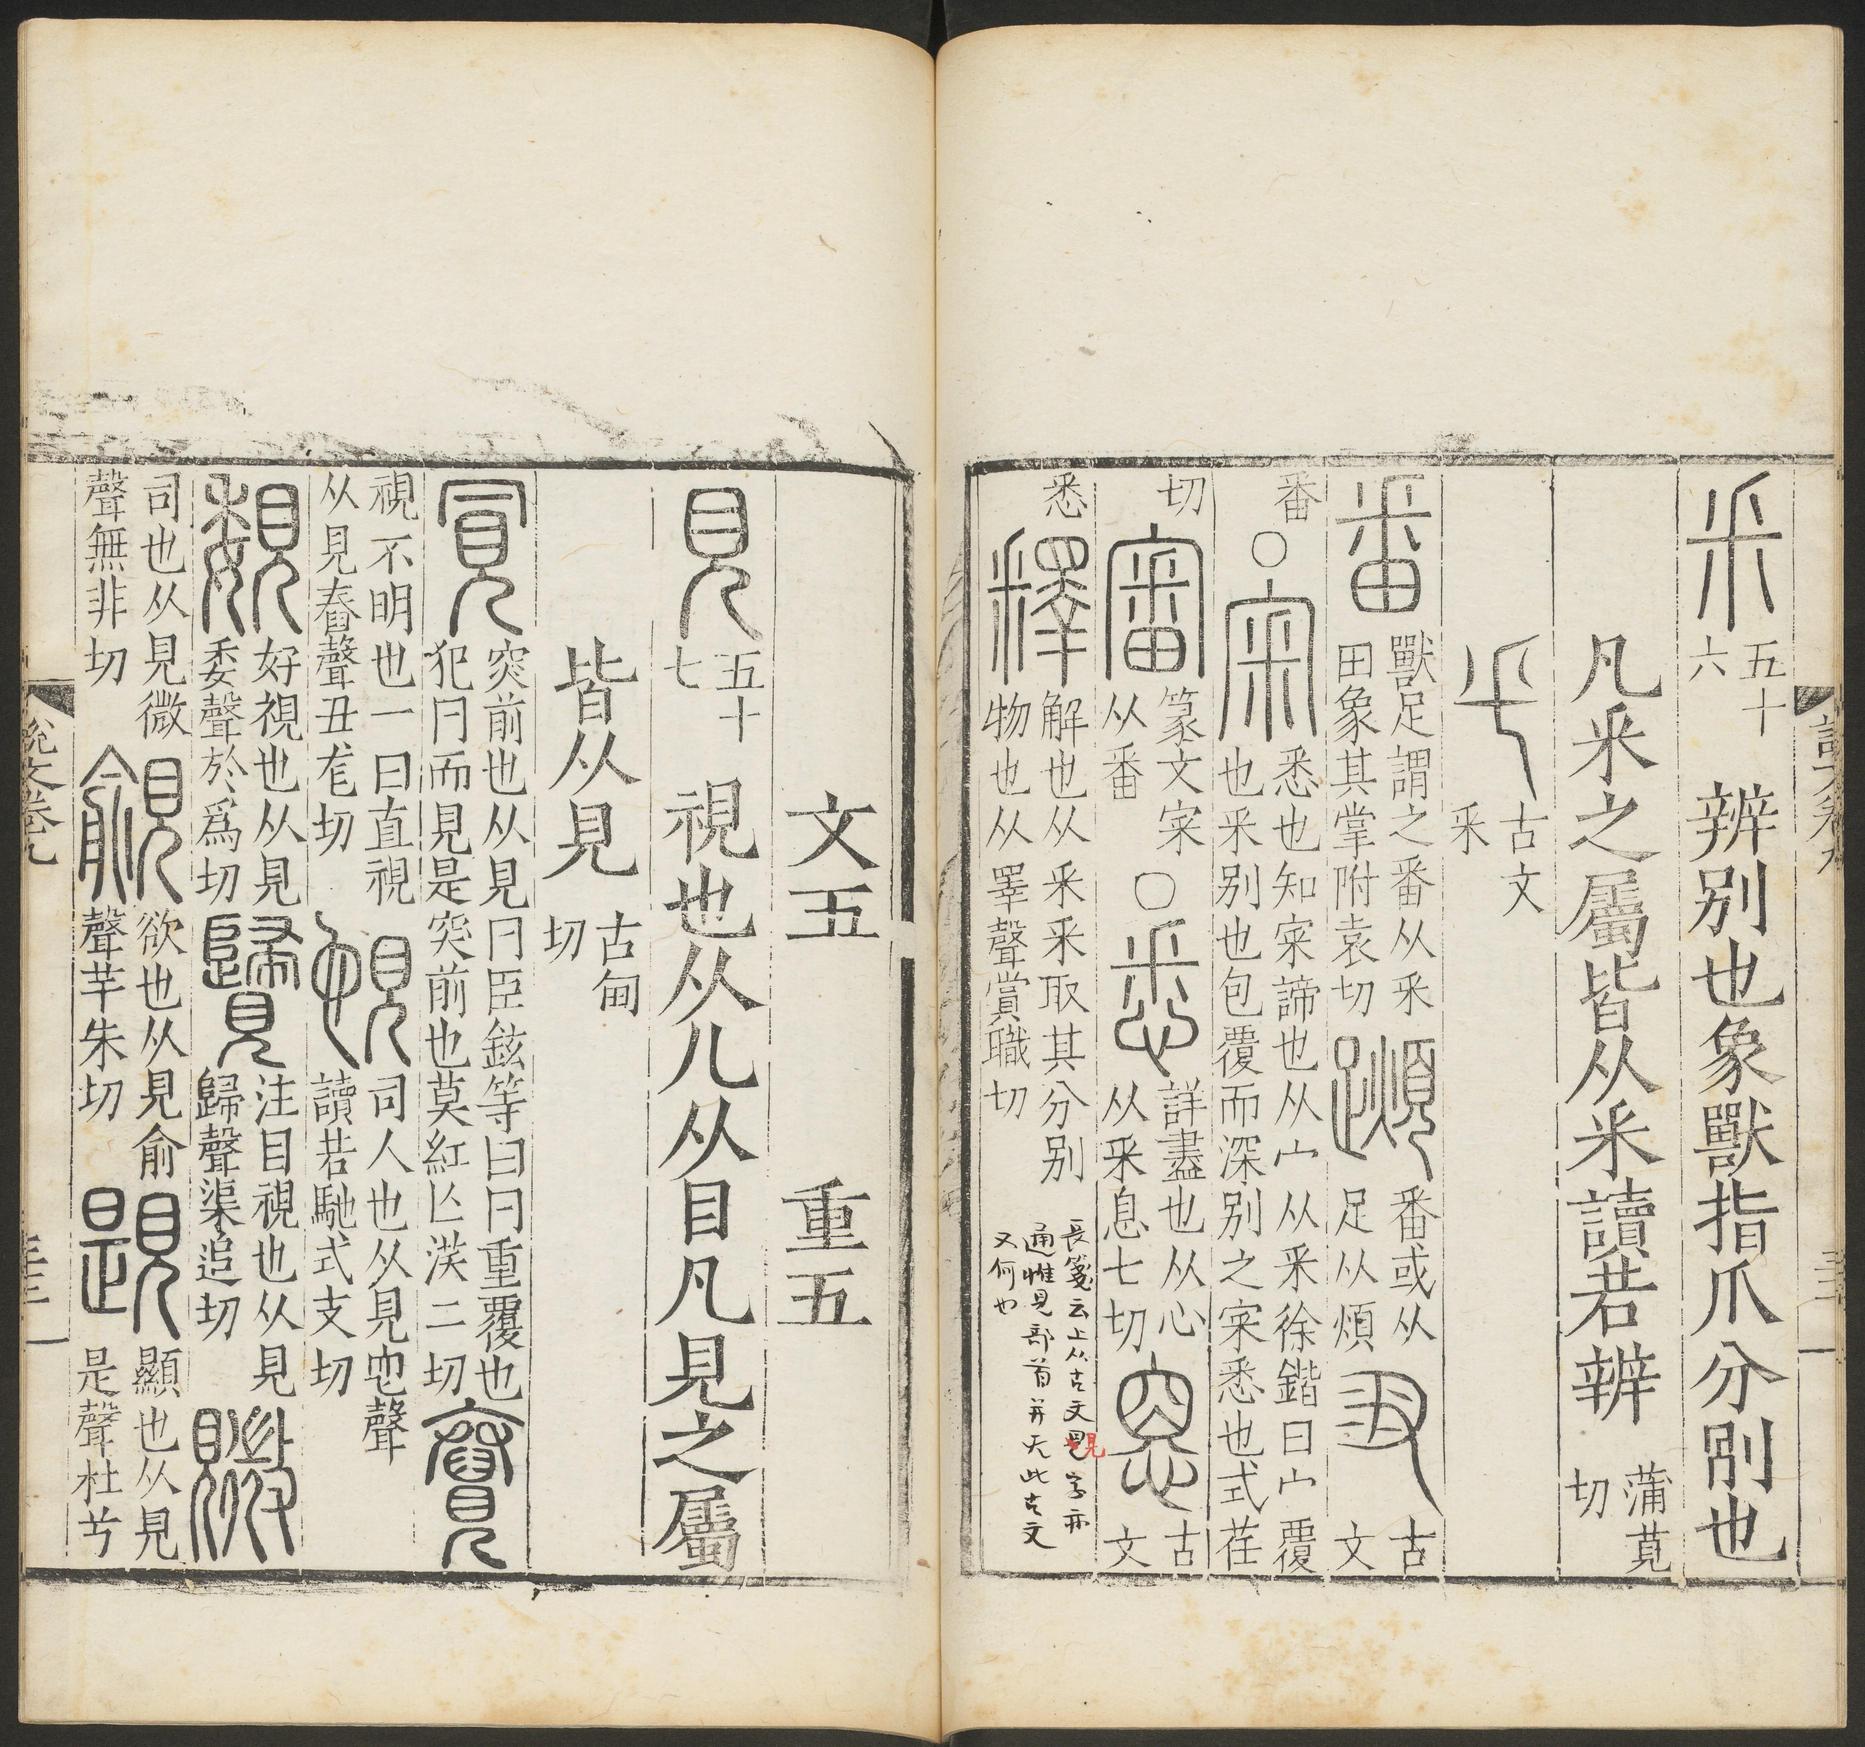 釆 五十六 辨别也象獸指爪分別也
凡釆之屬皆从釆讀若辨 蒲莧切
古文釆
番 獸足謂之番从釆田象其掌附袁切 蹞 番或从足从煩 古文
番〇宷 悉也知宷諦也从宀从釆徐鍇曰宀覆也釆别也包覆而深别之宷悉也式荏
切 審 篆文宷从番〇悉 詳盡也从心从釆息七切 古文
悉 釋 解也从釆釆取其分别物也从睪聲賞職切
長箋云上从古文
字亦
通惟見部首并无此古文
又何也
文五 重五
見 五十七 視也从儿从目凡見之屬
皆从見 古甸切
冒見 突前也从見冃臣鉉等曰冃重覆也犯冃而見是突前也莫紅亾沃二切 覾
視不明也一曰直視从見舂聲丑尨切 覗 司人也从見它聲讀若馳式支切
覣 好視也从見委聲於爲切 注目視也从見歸聲渠追切 覹
司也从見微聲無非切 覦 欲也从見俞聲羊朱切 題 顯也从見是聲杜兮
說文卷九